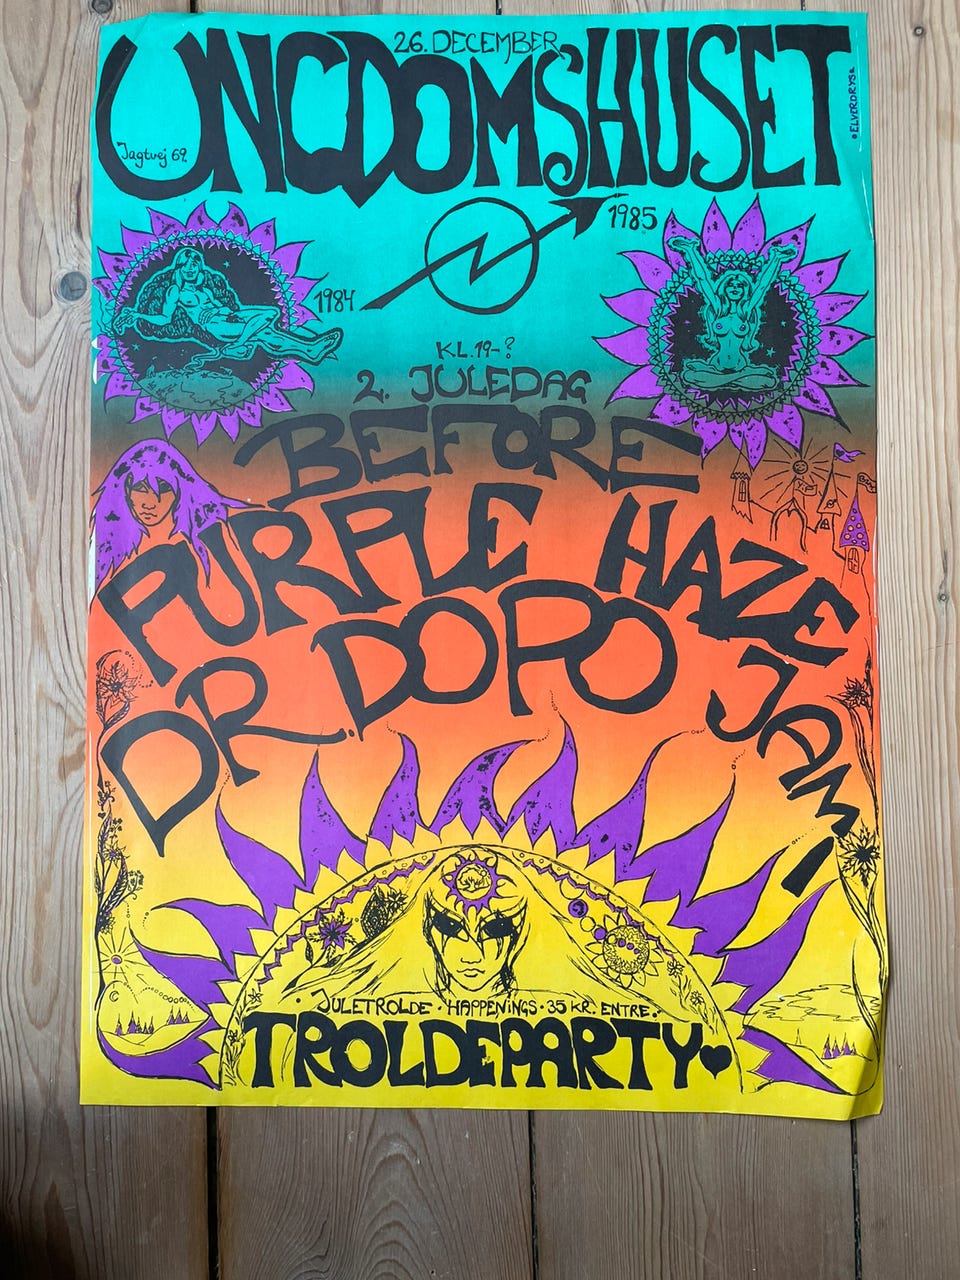 26. DECEMBER
UNGDOMSHUSET
• ELVERDRYS •
Jagtvej 69.
1985
1984
KL. 19-?
2. JULEDAG
BEFORE
PURPLE HAZE
DR. DOPO JAM
JULETROLDE • HAPPENINGS • 35 KR. ENTRE •
TROLDEPARTY